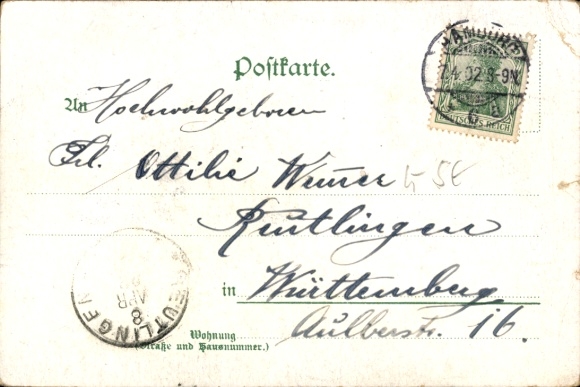 Postkarte.
HAMBURG
7.4.02.8-9N.
DEUTSCHES REICH
An Hochwohlgeboren
Frl. Ottilie Werner
Reutlingen
in Württemberg
Aulberstr. 16.
Wohnung
(Straße und Hausnummer.)
REUTLINGEN
8 APR